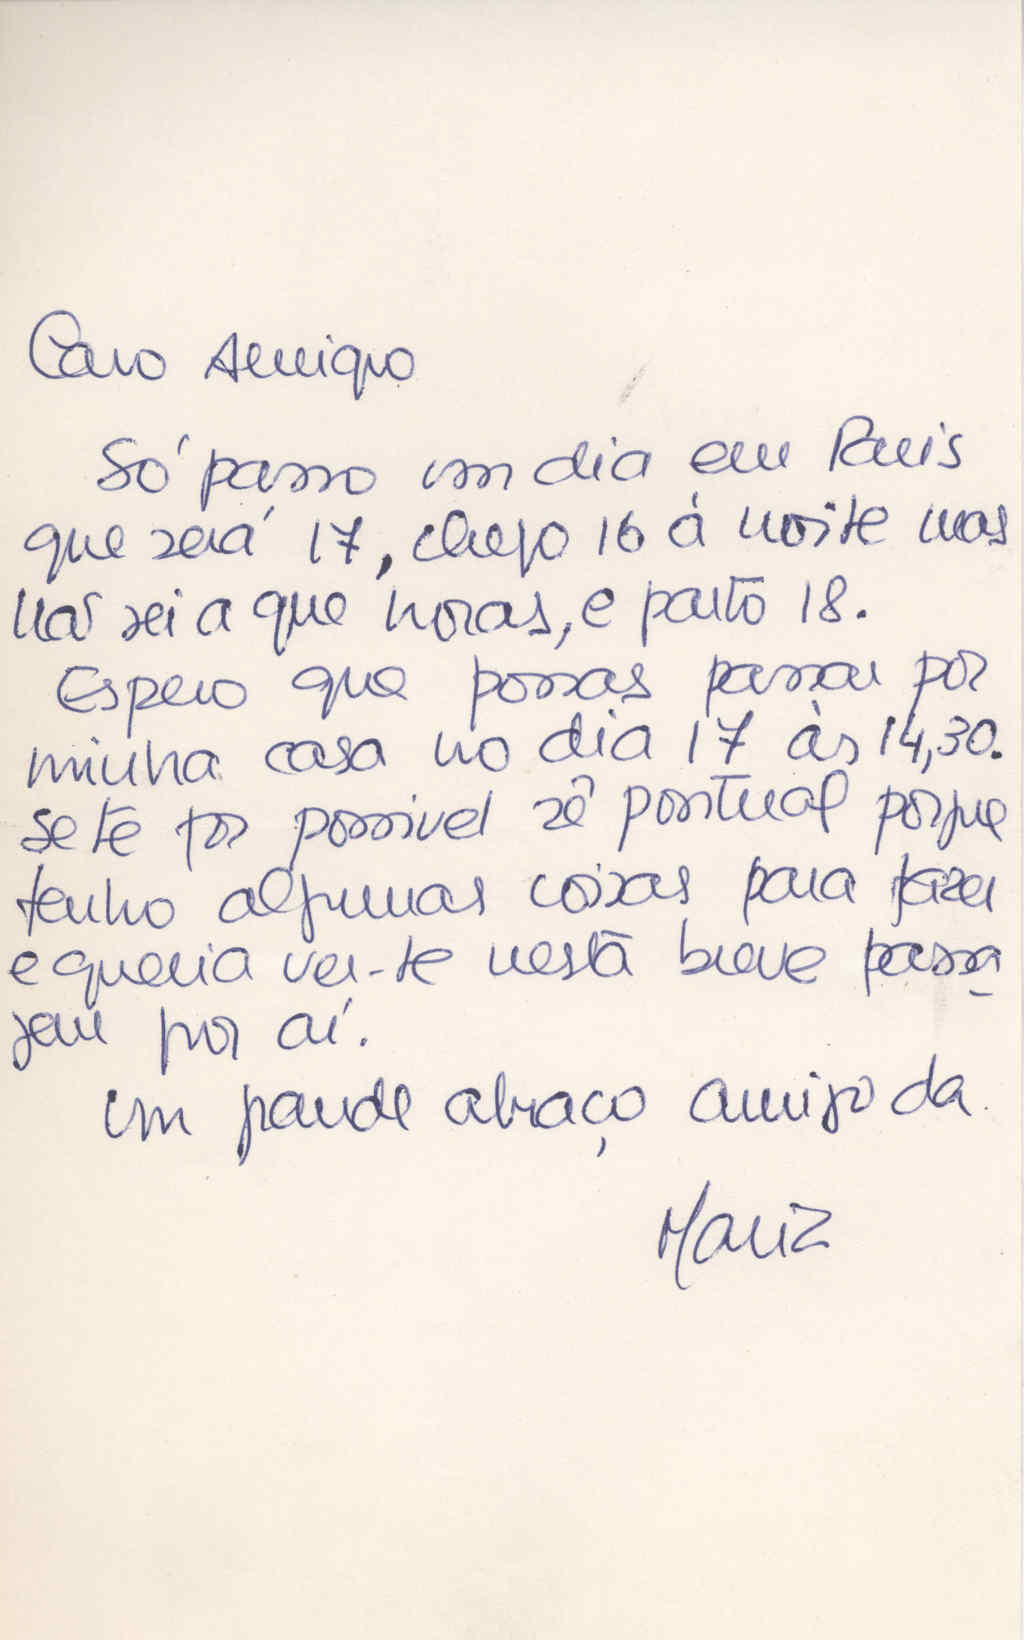 Caro Amigo
Só passo um dia em Paris
que será 17, chego 16 à noite mas
não sei a que horas, e parto 18.
Espero que possas passar por
minha casa no dia 17 às 14,30.
Se te for possivel sê pontual porque
tenho algumas coisas para fazer
e queria ver-te nesta breve passa
gem por aí.
Um grande abraço amigo da
Mariz